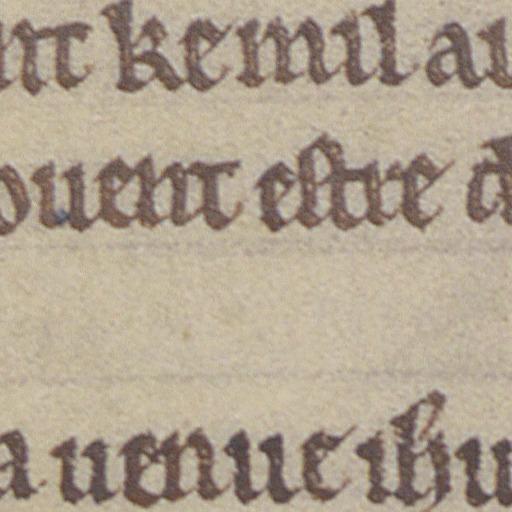 nt ke mil au
ouent estre d
a uenue ihu